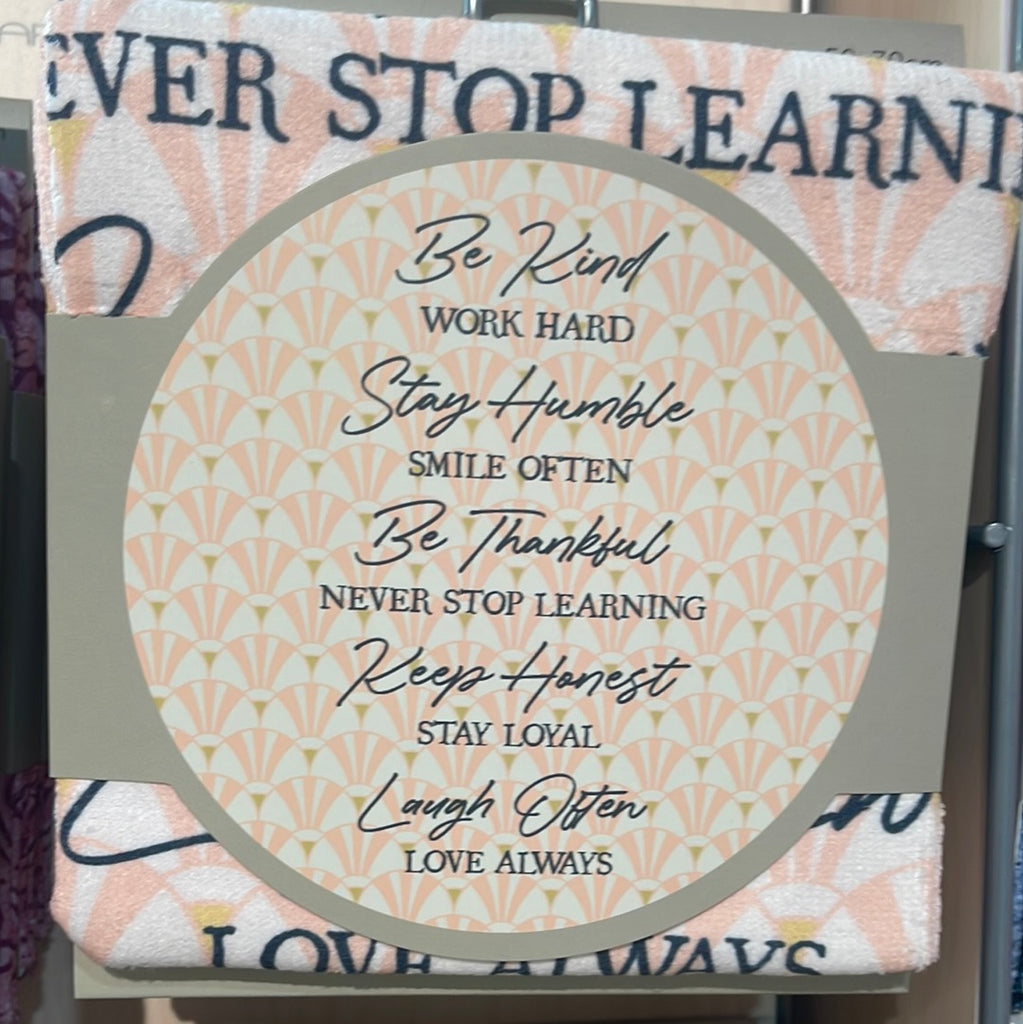 EVER STOP LEARNI
Be Kind
WORK HARD
Stay Humble
SMILE OFTEN
Be Thankful
NEVER STOP LEARNING
Keep Honest
STAY LOYAL
Laugh Often
LOVE ALWAYS
LOVE ALWAYS